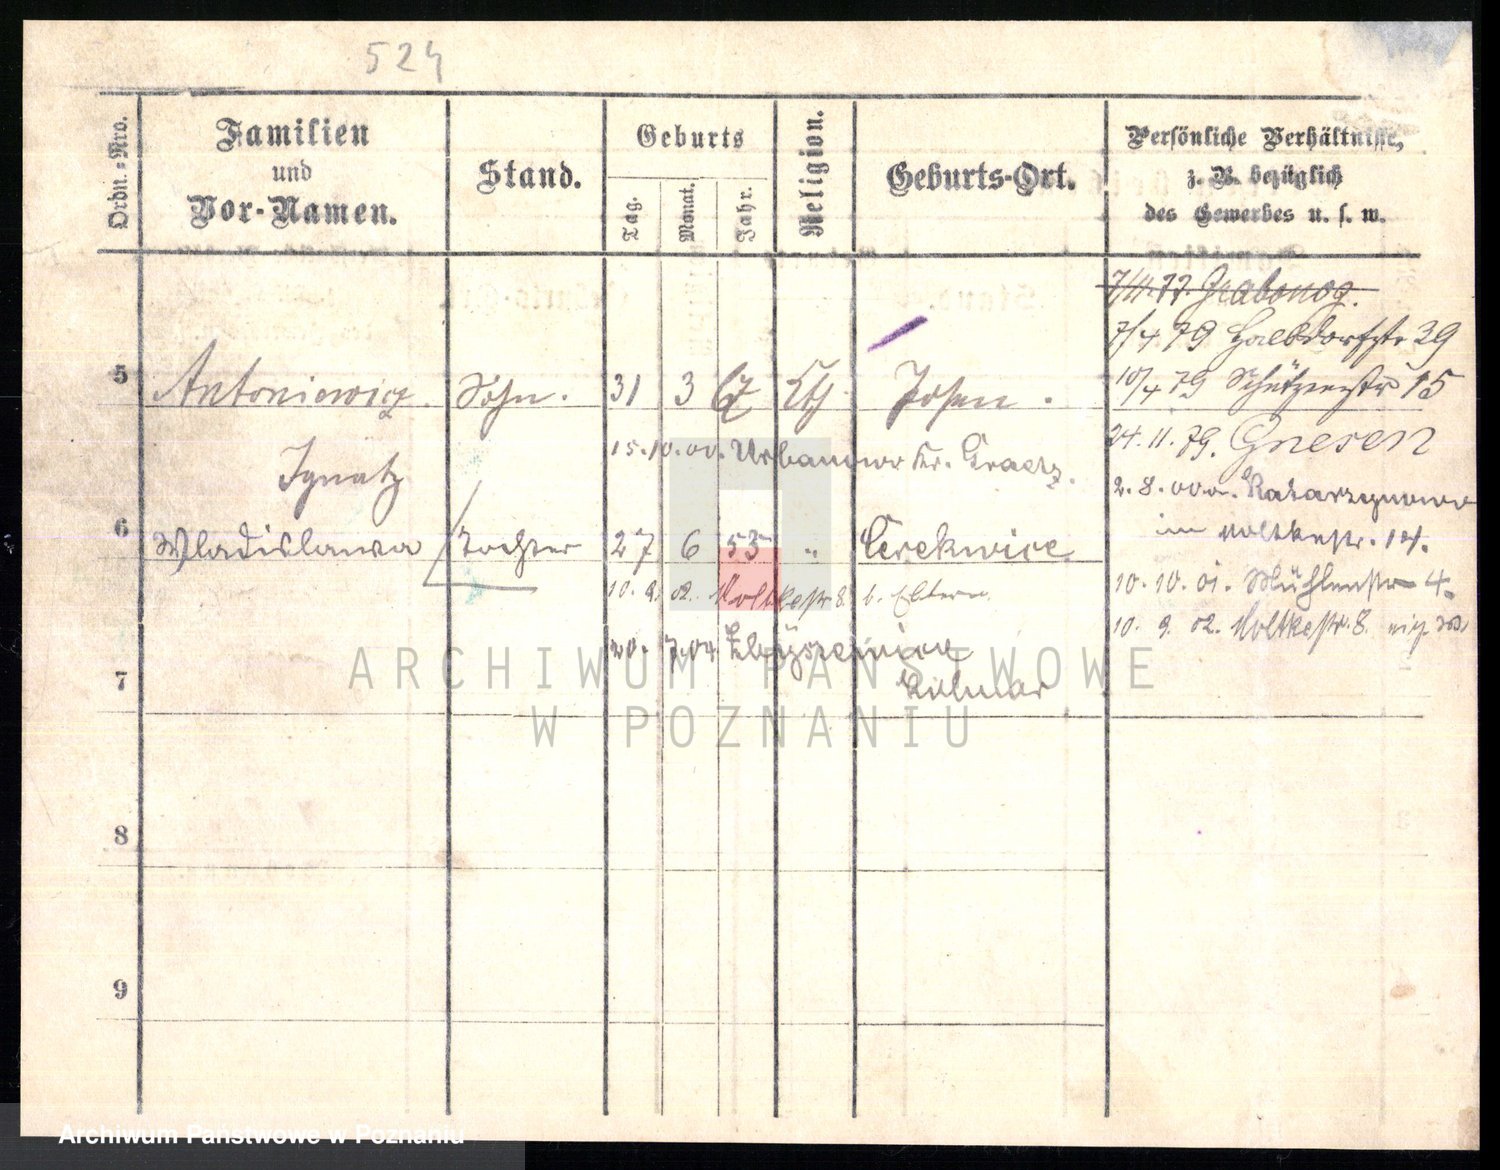 524
Ordn.=Nro.
Familien
und
Vor-Namen.
Stand.
Geburts
Tag.
Monat.
Jahr.
Religion.
Geburts-Ort.
Persönliche Verhältnisse,
z. B. bezüglich
des Gewerbes u. s. w.
7/4.77. Grabonog.
7/4 79 Halbdorfstr 39
5 Antoniewicz. Sohn. 31 3 Kth. Posen. 10/4 79 Schützenstr 15
15.10.00. Urbanowo Kr. Graetz. 24.11.79. Gnesen
Ignatz
2.8.00.
6 Wladislawa Tochter 27 6 53 " Cerekwice
im Moltkestr. 14.
10.9.02. Moltkestr 8. b. Eltern. 10.10.01. Mühlenstr 4.
10.9.02. Moltkestr. 8.
20.7.04
7 Kolmar
8
9
ARCHIWUM PAŃSTWOWE
W POZNANIU
Archiwum Państwowe w Poznaniu